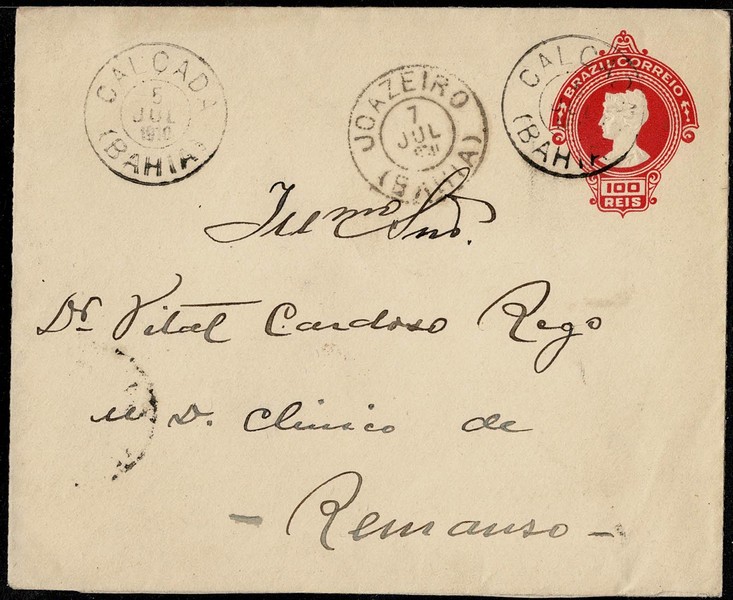 CALÇADA
5
JUL
(BAHIA)
JOAZEIRO
7
JUL
(BAHIA)
CALÇADA
(BAHIA)
BRAZIL CORREIO
100
REIS
Dr. Vital Cardoso Rego
M. D. Clinico de
- Remanso -